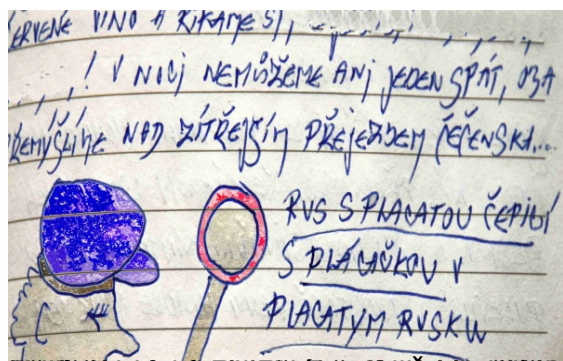 ČERVENÉ VÍNO A ŘÍKÁME SI,
! V NOCI NEMŮŽEME ANI JEDEN SPÁT, OBA
PŘEMÝŠLÍME NAD ZÍTŘEJŠÍM PŘEJEZDEM ČEČENSKA...
RUS S PLACATOU ČEPICÍ
S PLÁCAČKOU V
PLACATÝM RUSKU